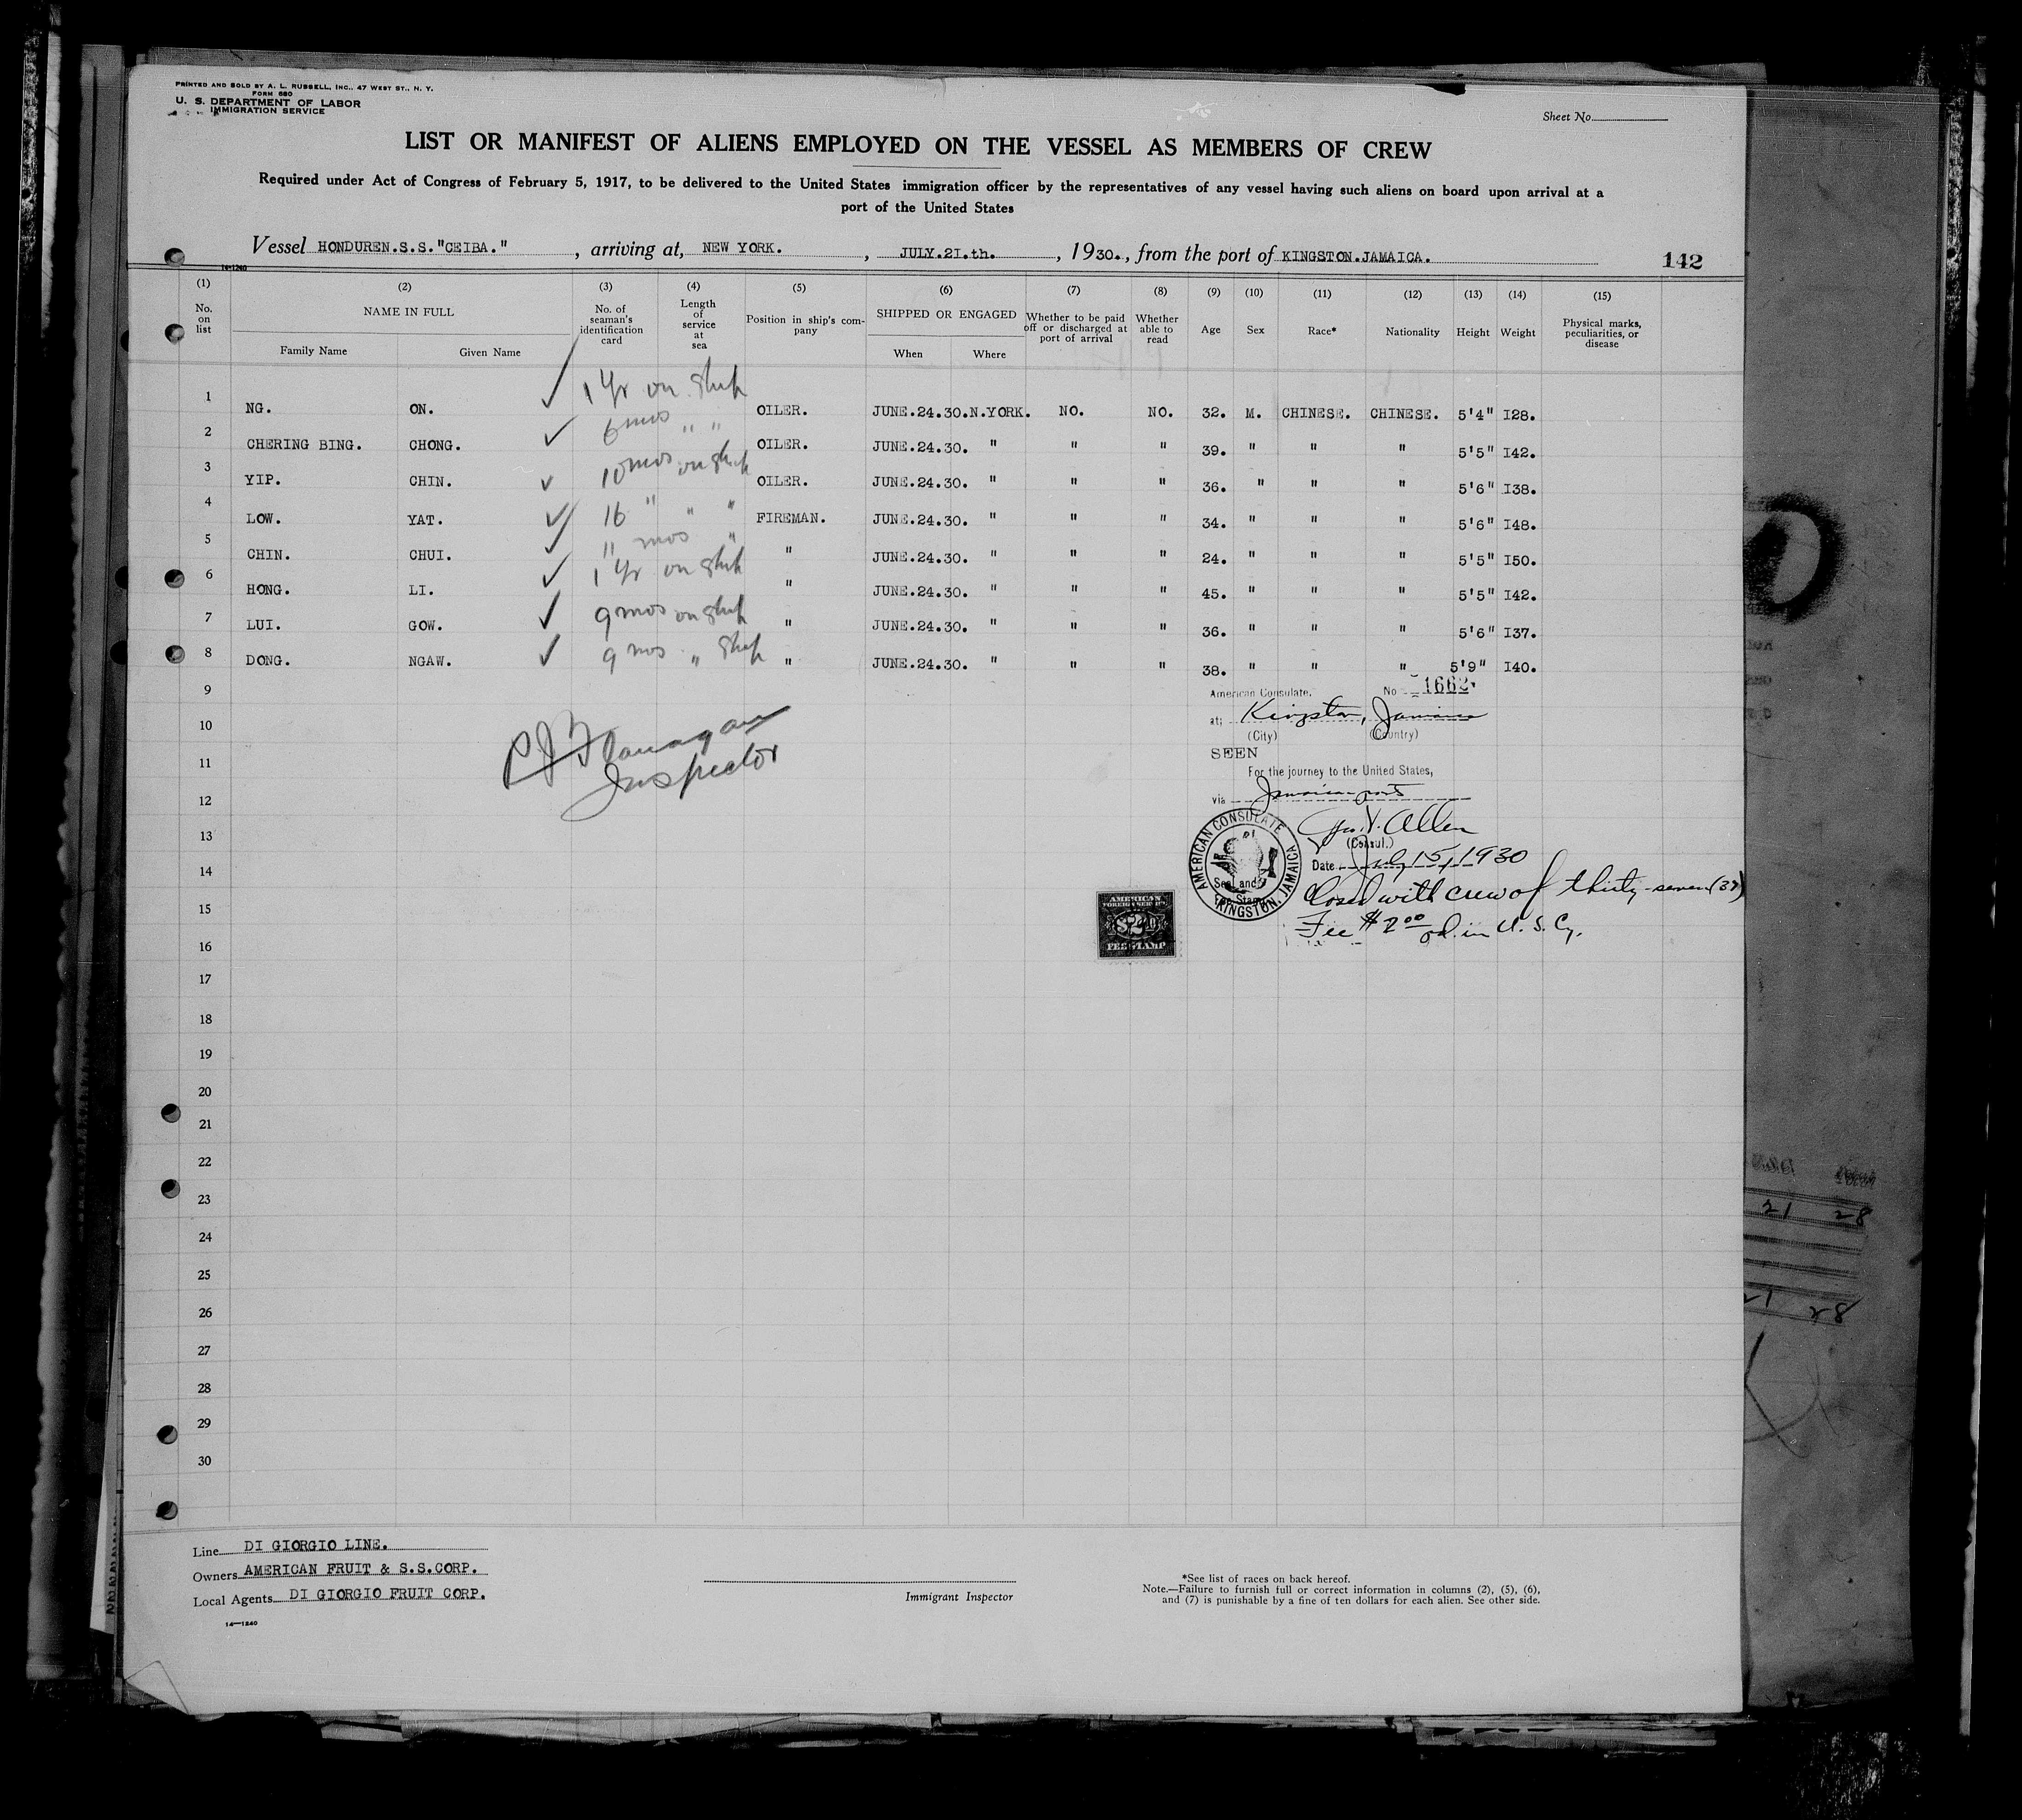 PRINTED AND SOLD BY A. L. RUSSELL, INC., 47 WEST ST., N. Y.
FORM 680
U. S. DEPARTMENT OF LABOR
IMMIGRATION SERVICE
Sheet No.
LIST OR MANIFEST OF ALIENS EMPLOYED ON THE VESSEL AS MEMBERS OF CREW
Required under Act of Congress of February 5, 1917, to be delivered to the United States immigration officer by the representatives of any vessel having such aliens on board upon arrival at a
port of the United States
Vessel HONDUREN.S.S."CEIBA." , arriving at, NEW YORK. , JULY.2I.th. , 1930., from the port of KINGSTON.JAMAICA. 142
14-1240
(1) (2) (3) (4) (5) (6) (7) (8) (9) (10) (11) (12) (13) (14) (15)
No. on list NAME IN FULL Family Name Given Name No. of seaman's identification card Length of service at sea Position in ship's company SHIPPED OR ENGAGED When Where Whether to be paid off or discharged at port of arrival Whether able to read Age Sex Race* Nationality Height Weight Physical marks, peculiarities, or disease
1 NG. ON. ✓ 1 yr on ship OILER. JUNE.24.30.N.YORK. NO. NO. 32. M. CHINESE. CHINESE. 5'4" I28.
2 CHERING BING. CHONG. ✓ 6 mos " " OILER. JUNE.24.30. " " " 39. " " " 5'5" I42.
3 YIP. CHIN. ✓ 10 mos on ship OILER. JUNE.24.30. " " " 36. " " " 5'6" I38.
4 LOW. YAT. ✓ 16 " " " FIREMAN. JUNE.24.30. " " " 34. " " " 5'6" I48.
5 CHIN. CHUI. ✓ 11 mos " " JUNE.24.30. " " " 24. " " " 5'5" I50.
6 HONG. LI. ✓ 1 yr on ship " JUNE.24.30. " " " 45. " " " 5'5" I42.
7 LUI. GOW. ✓ 9 mos on ship " JUNE.24.30. " " " 36. " " " 5'6" I37.
8 DONG. NGAW. ✓ 9 mos " ship " JUNE.24.30. " " " 38. " " " 5'9" I40.
9
10
11
12
13
14
15
16
17
18
19
20
21
22
23
24
25
26
27
28
29
30
Flanagan
Inspector
American Consulate. No 1662
at; Kingston, Jamaica
(City) (Country)
SEEN
For the journey to the United States,
via Jamaican ports
Allen
(Consul.)
Date July 15, 1930
Closed with crew of thirty-seven (37)
Fee $2.00 pd. in U. S. Cy.
AMERICAN CONSULATE
KINGSTON, JAMAICA
Seal and
Stamp
AMERICAN
FOREIGN SERVICE
$2
FEE STAMP
Line DI GIORGIO LINE.
Owners AMERICAN FRUIT & S.S.CORP.
Local Agents DI GIORGIO FRUIT CORP.
14—1240
Immigrant Inspector
*See list of races on back hereof.
Note.—Failure to furnish full or correct information in columns (2), (5), (6),
and (7) is punishable by a fine of ten dollars for each alien. See other side.
21 28
21 28